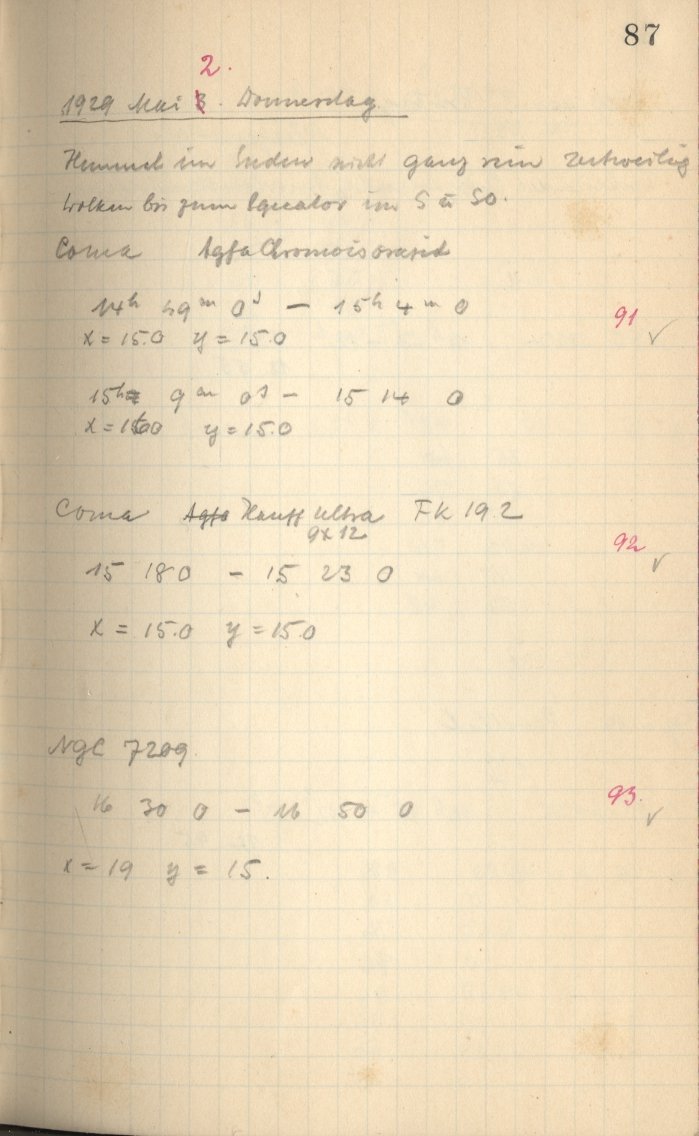 87
2.
1929 Mai 3. Donnerstag
Himmel im Süden nicht ganz rein zeitweilig
Wolken bis zum Equator im S u SO.
Coma Agfa Chromoisorapid
14h 59m 0s – 15h 4m 0
91 ✓
x = 15.0 y = 15.0
15h 9m 0s – 15 14 0
x = 1600 y = 15.0
Coma Agfa Hauff Ultra FK 19.2
9x12
92 ✓
15 18 0 – 15 23 0
x = 15.0 y = 15.0
NGC 7209
16 30 0 – 16 50 0
93. ✓
x = 19 y = 15.